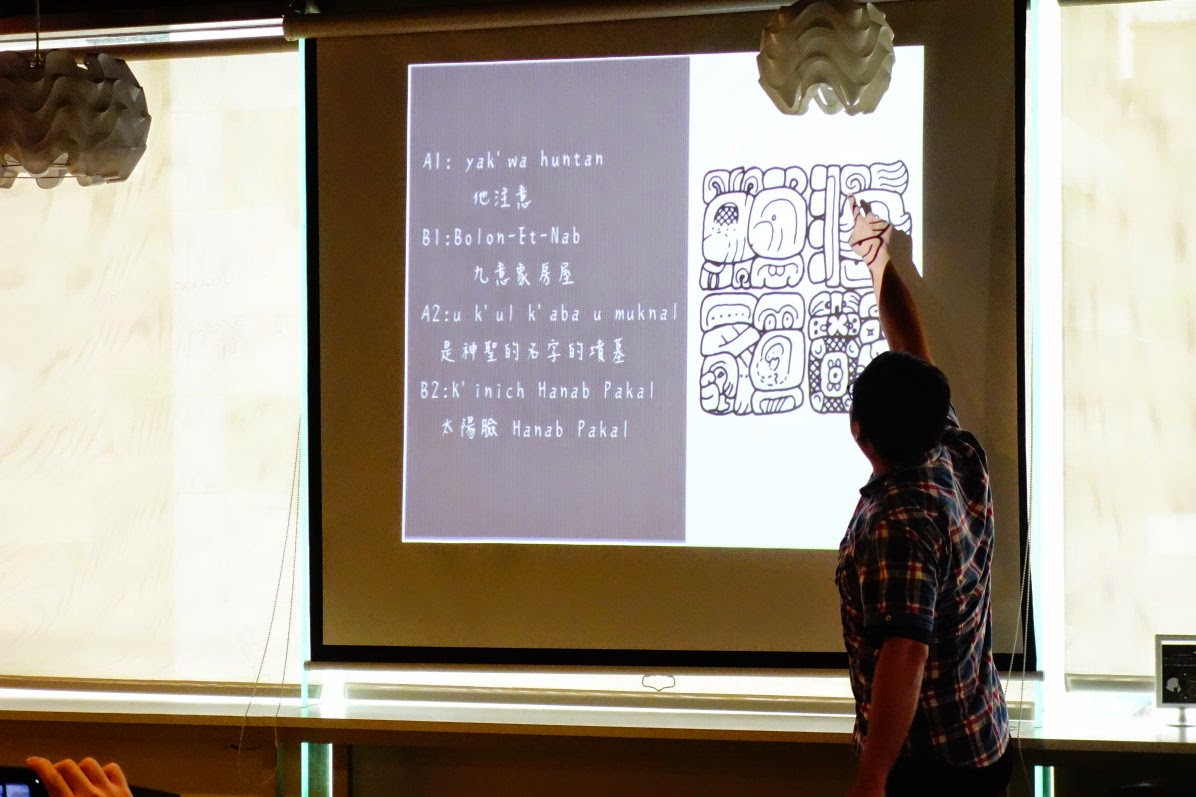 A1: yak'wa huntan
他注意
B1:Bolon-Et-Nab
九意象房屋
A2:u k'ul k'aba u muknal
是神聖的名字的墳墓
B2:K'inich Hanab Pakal
太陽臉 Hanab Pakal